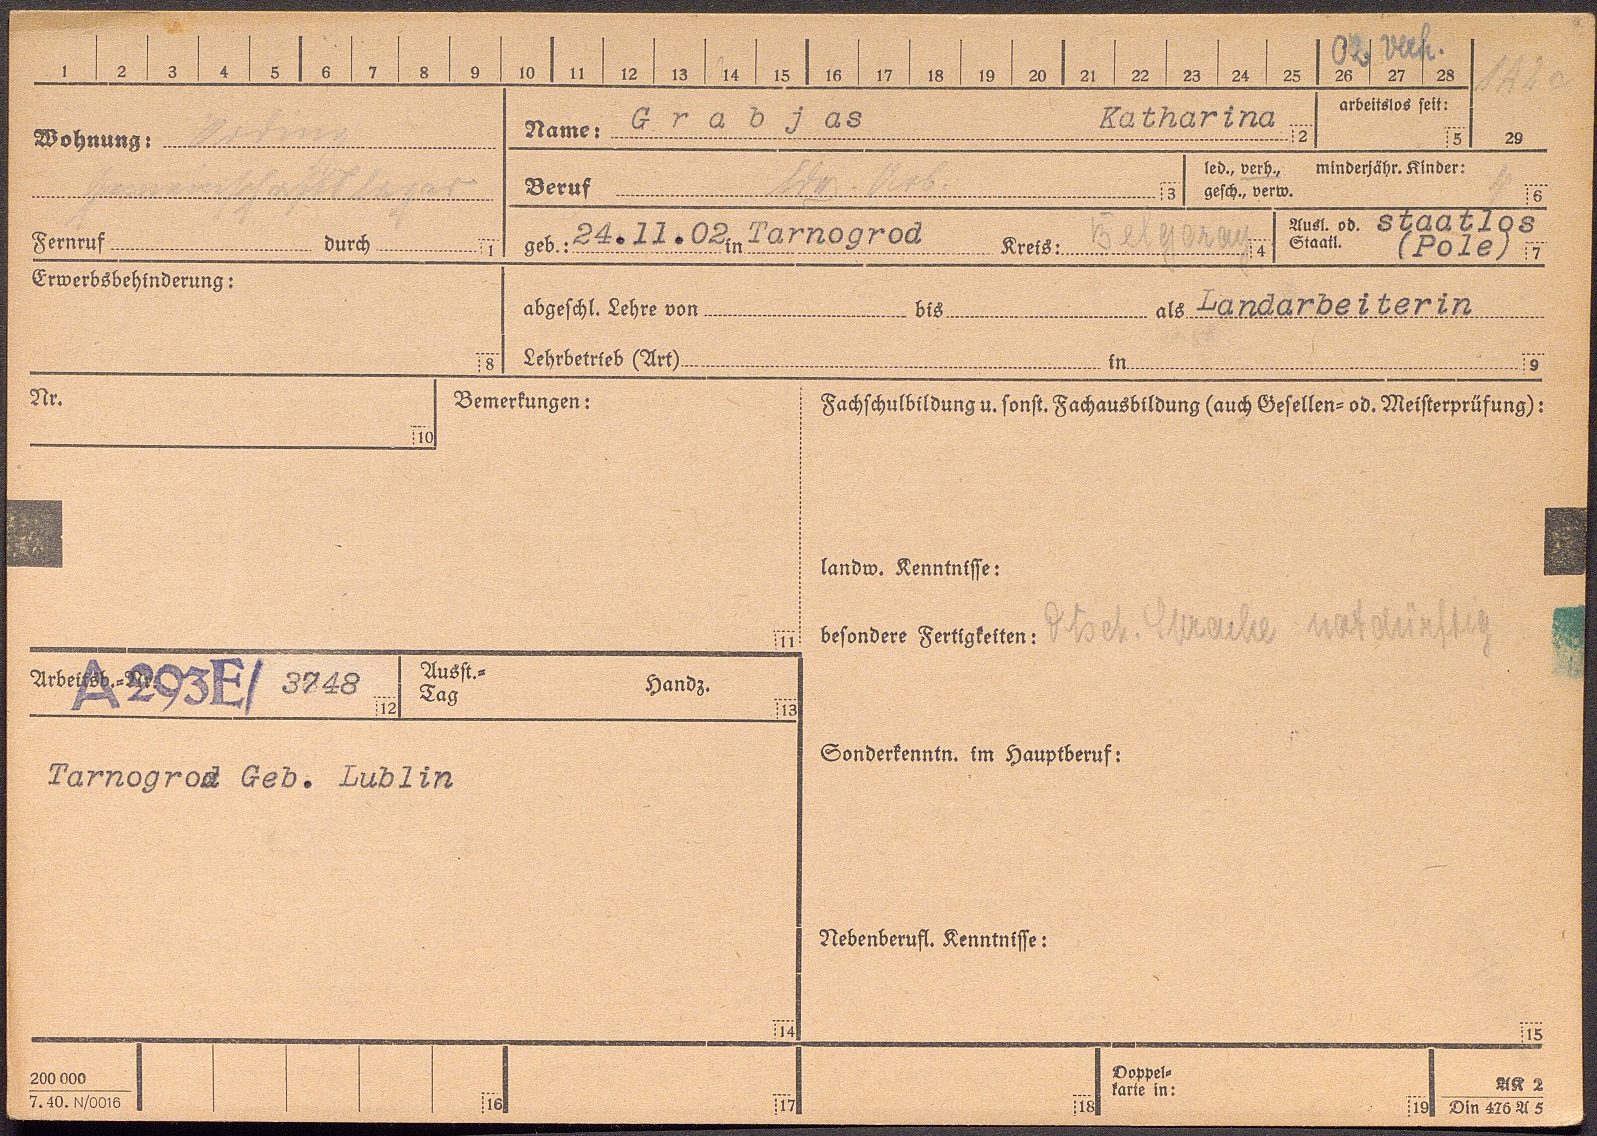 02 verh.
1 2 3 4 5 6 7 8 9 10 11 12 13 14 15 16 17 18 19 20 21 22 23 24 25 26 27 28
29
Wohnung:
Gemeinschaftslager
Fernruf durch 1
Name: Grabjas Katharina 2
arbeitslos seit: 5
Beruf Ldw. Arb. 3
led., verh., minderjähr. Kinder: 4
gesch., verw. 6
geb.: 24.11.02 in Tarnogrod Kreis: Belgoray 4
Ausl. od. staatlos
Staatl. (Pole) 7
Erwerbsbehinderung: 8
abgeschl. Lehre von bis als Landarbeiterin
Lehrbetrieb (Art) in 9
Nr. 10
Bemerkungen: 11
Fachschulbildung u. sonst. Fachausbildung (auch Gesellen- od. Meisterprüfung):
landw. Kenntnisse:
besondere Fertigkeiten: Dtsch. Sprache notdürftig
Arbeitsb.-Nr. A 293E/ 3748 12
Ausst.- Handz.
Tag 13
Tarnogrod Geb. Lublin
14
Sonderkenntn. im Hauptberuf:
Nebenberufl. Kenntnisse:
15
200 000
7. 40. N/0016
16 17 18
Doppel-
karte in: 19
AK 2
Din 476 A 5